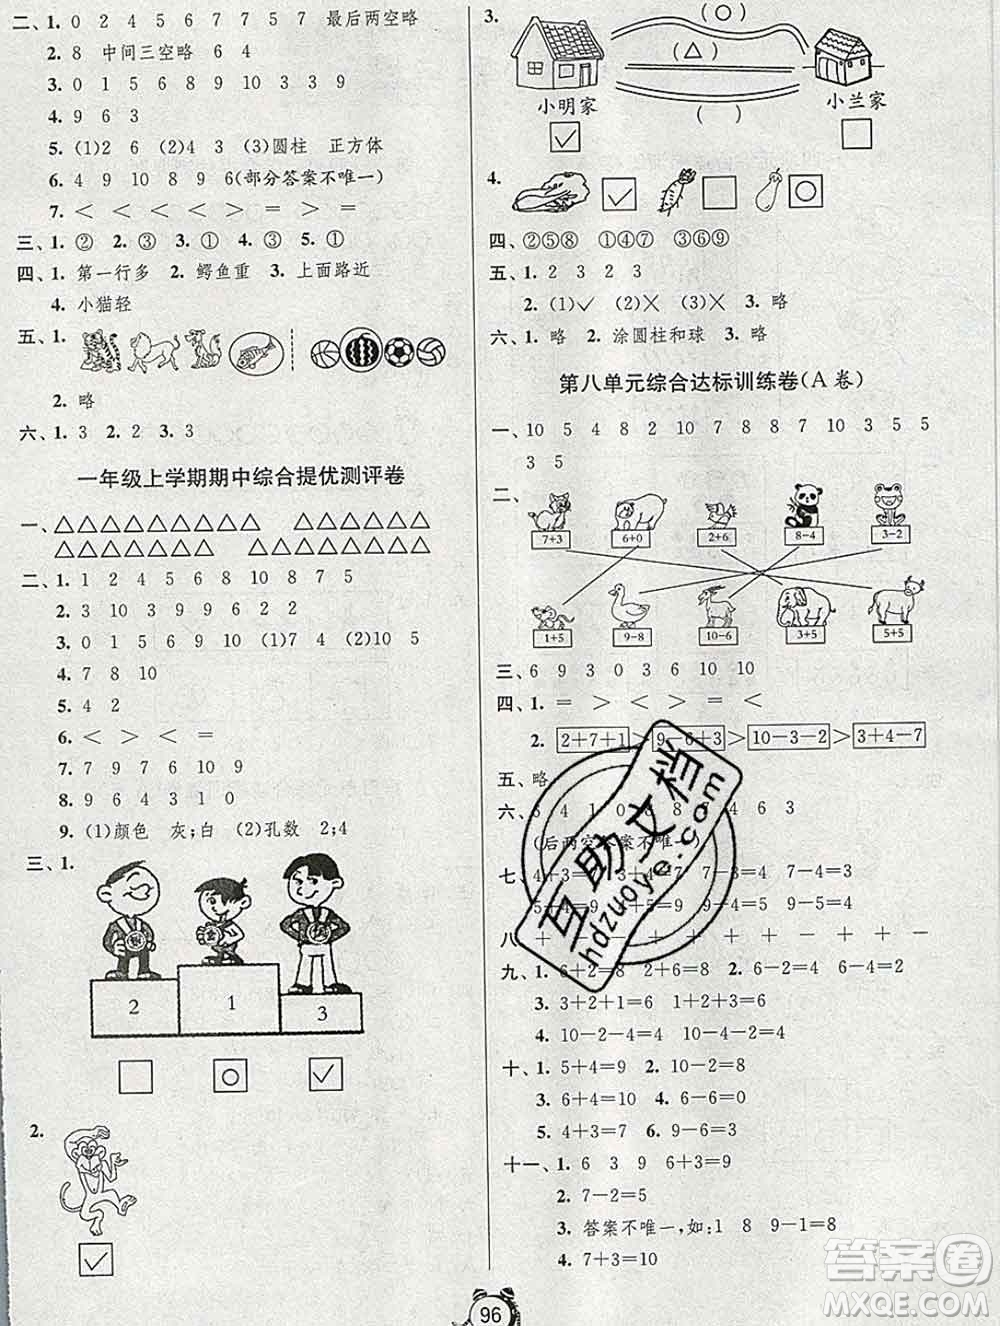 二、1. 0 2 4 5 6 7 7 5 7 最后两空略
2. 8 中间三空略 6 4
3. 0 1 5 6 8 9 3 3 9
4. 9 6 3
5. (1)2 6 (2)4 3 (3)圆柱 正方体
6. 4 9 10 8 9 6(部分答案不唯一)
7. < < < < > = > =
三、1. ② 2. ③ 3. ① 4. ③ 5. ①
四、1. 第一行多 2. 鳄鱼重 3. 上面路近
4. 小猫轻
五、1.
2. 略
六、1. 3 2. 2 3. 3
一年级上学期期中综合提优测评卷
一、△△△△△△△△△ △△△△△△
△△△△△△△ △△△△△△△△
二、1. 1 2 4 5 6 8 10 8 7 5
2. 3 10 3 9 9 6 2 2
3. 0 1 5 6 9 10 (1)7 4 (2)10 5
4. 7 8 10
5. 4 2
6. < > < =
7. 7 9 7 6 10 9
8. 9 6 4 3 1 0
9. (1)颜色 灰;白 (2)孔数 2;4
三、1.
2 1 3
○ ✓
2.
✓
3. (○)
(△)
( )
小明家 小兰家
✓
4. ✓ ○
四、②⑤⑧ ①④⑦ ③⑥⑨
五、1. 2 3 2 3
2. (1)✓ (2)✕ (3)✕ 3. 略
六、1. 略 2. 涂圆柱和球 3. 略
第八单元综合达标训练卷(A卷)
一、10 5 4 8 2 10 7 8 7 10 3 5 5
3 5
二、
7+3 6+0 2+6 8-4 3-2
1+5 9-8 10-6 3+5 5+5
三、6 9 3 0 3 6 10 10
四、1. = > < < > = <
2. 2+7+1>9-6+3>10-3-2>3+4-7
五、略
六、 4 1 0 8 8 4 6 3
(后两空答案不唯一)
七、4+3=7 3+4=7 7-3=4 7-4=3
5+4=9 4+5=9 9-4=5 9-5=4
八、+ - + + - + -
九、1. 6+2=8 2+6=8 2. 6-2=4 6-4=2
3. 3+2+1=6 1+2+3=6
4. 10-2-4=4 10-4-2=4
十、1. 5+4=9 2. 10-2=8
3. 6+4=10 4. 6-6=0
5. 4+3=7 6. 9-6=3
十一、1. 6 3 9 6+3=9
2. 7-2=5
3. 答案不唯一,如:1 8 9-1=8
4. 7+3=10
互助文档
hdzuoye.com
96
答案圈
MXQE.COM